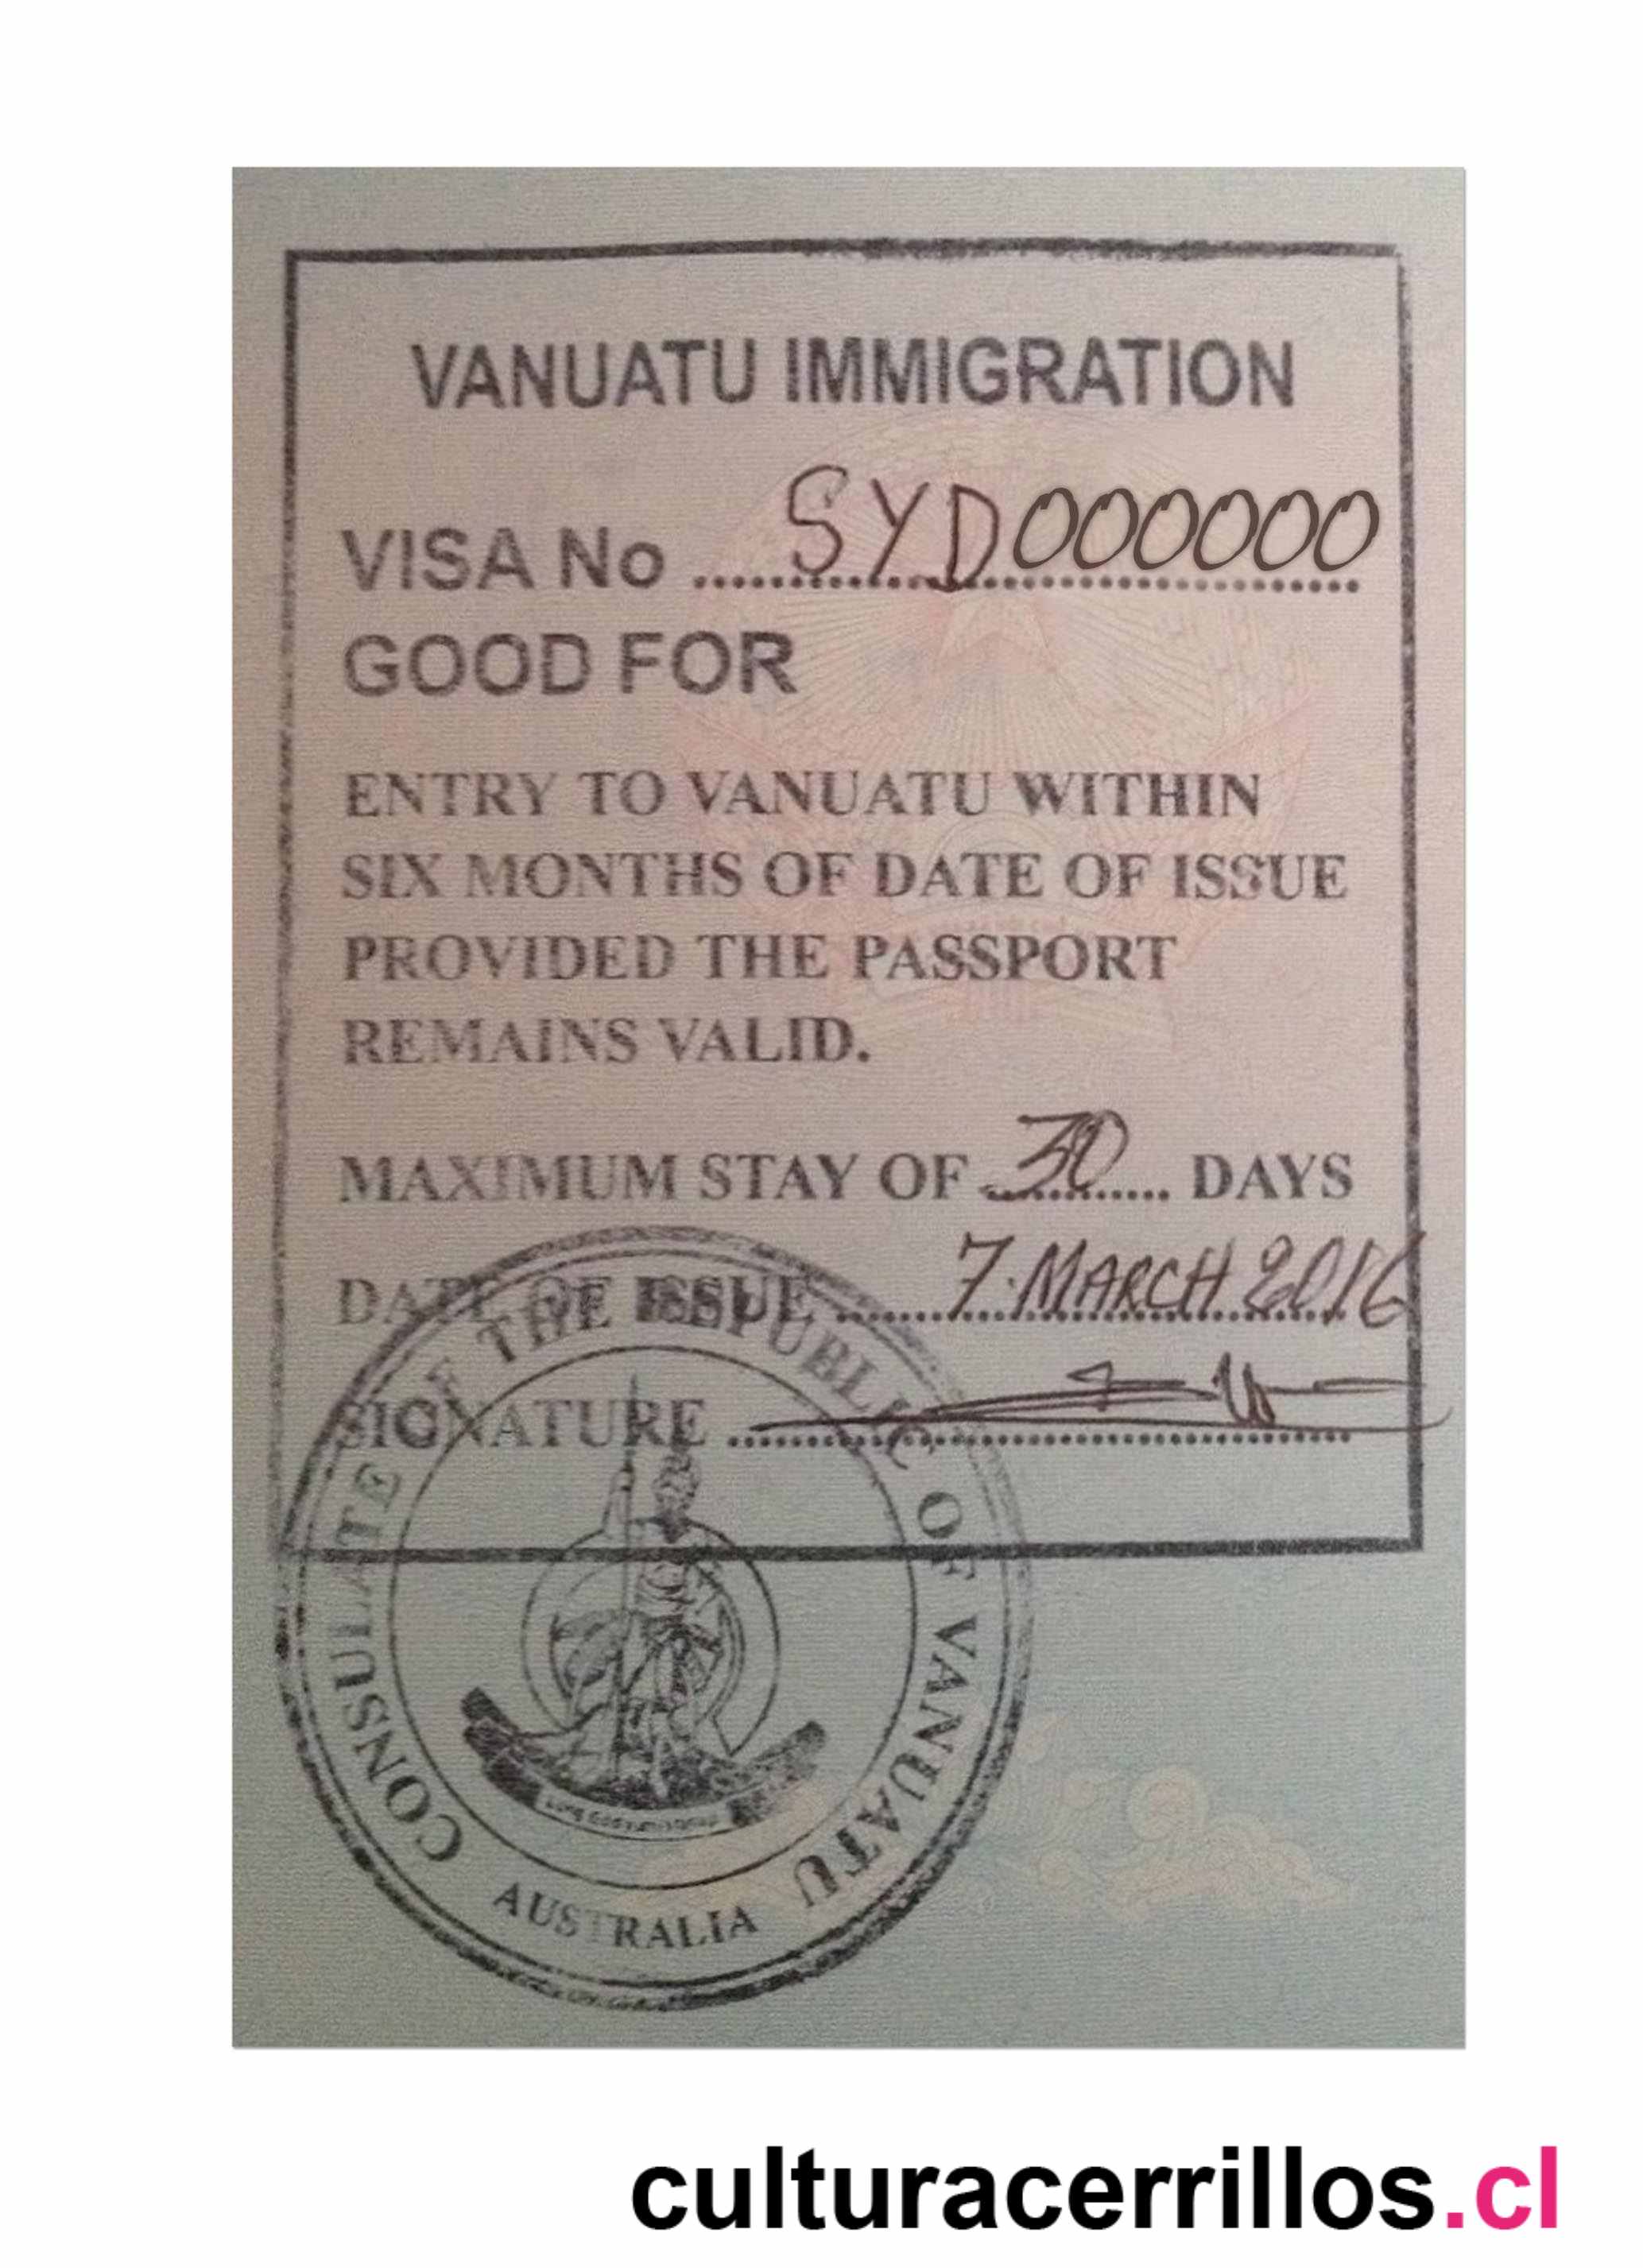 VANUATU IMMIGRATION
VISA No SYD000000
GOOD FOR
ENTRY TO VANUATU WITHIN
SIX MONTHS OF DATE OF ISSUE
PROVIDED THE PASSPORT
REMAINS VALID.
MAXIMUM STAY OF 30 DAYS
DATE OF ISSUE 7 MARCH 2016
SIGNATURE
CONSULATE OF THE REPUBLIC OF VANUATU
AUSTRALIA
culturacerrillos.cl